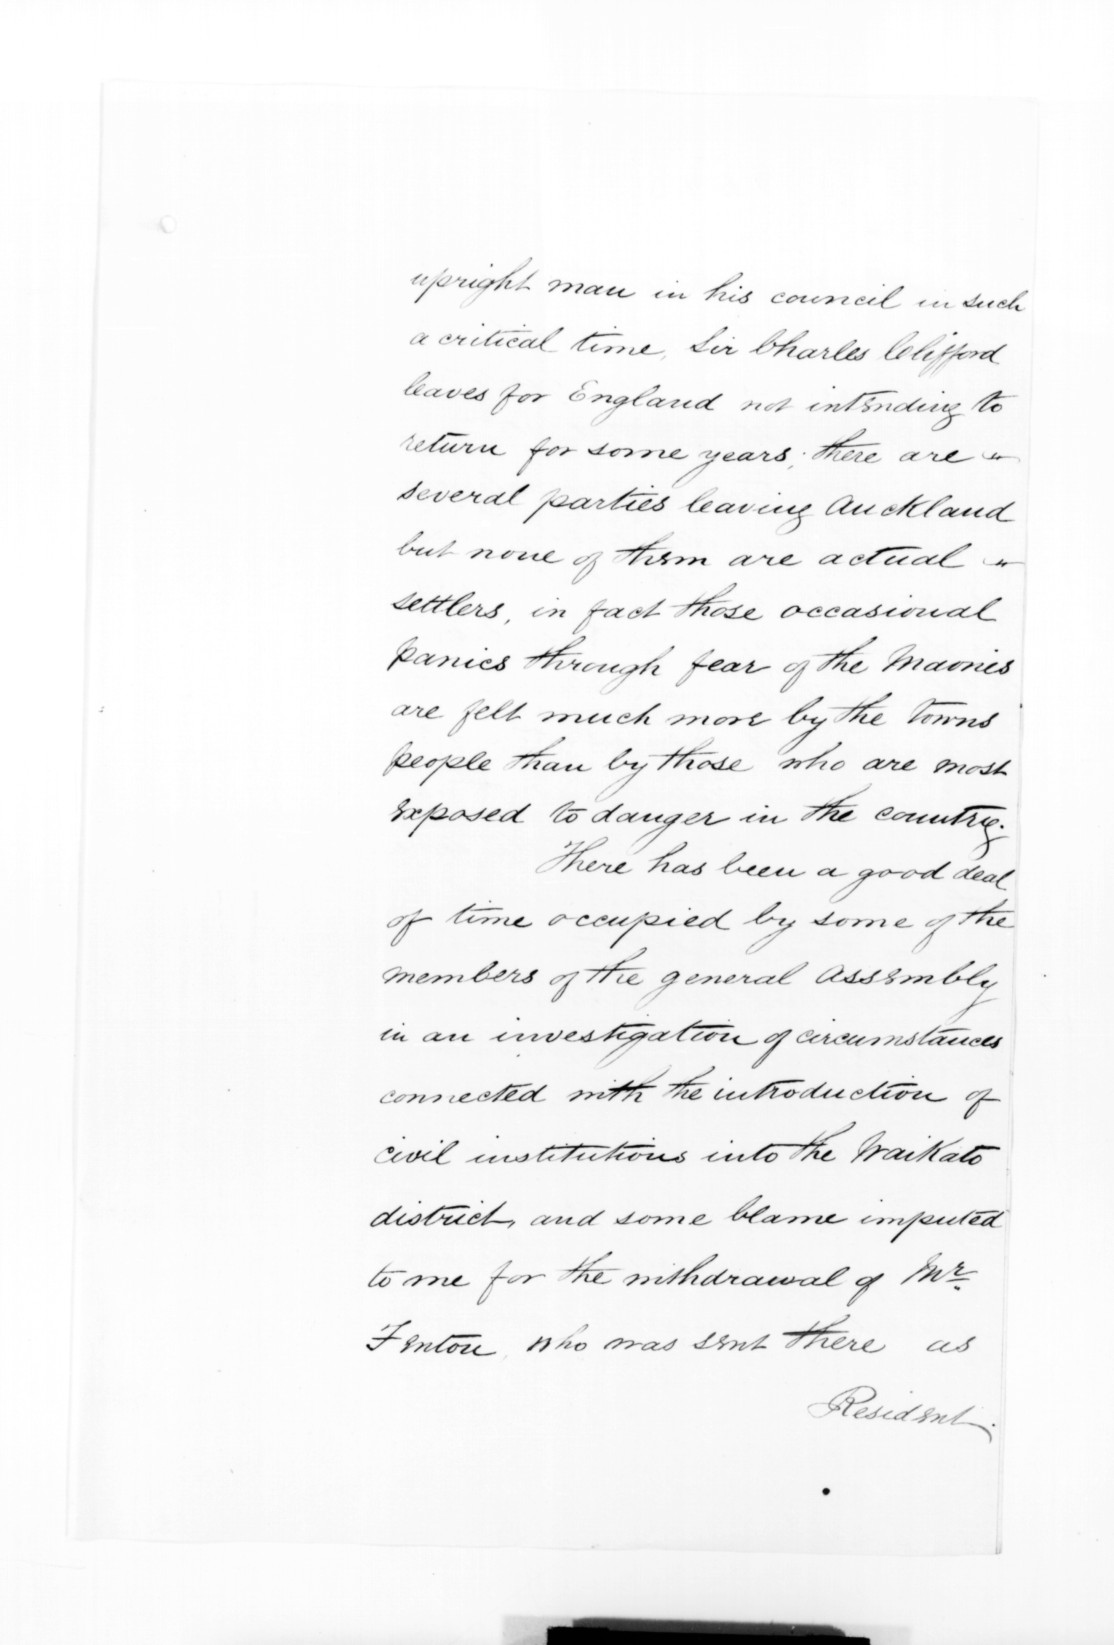 upright man in his council in such
a critical time, Sir Charles Clifford
leaves for England not intending to
return for some years; there are "
several parties leaving Auckland
but none of them are actual "
settlers, in fact those occasional
panics through fear of the Maories
are felt much more by the towns
people than by those who are most
exposed to danger in the country.
There has been a good deal
of time occupied by some of the
members of the general Assembly
in an investigation of circumstances
connected with the introduction of
civil institutions into the Waikato
district, and some blame imputed
to me for the withdrawal of Mr.
Fenton, who was sent there as
Resident.